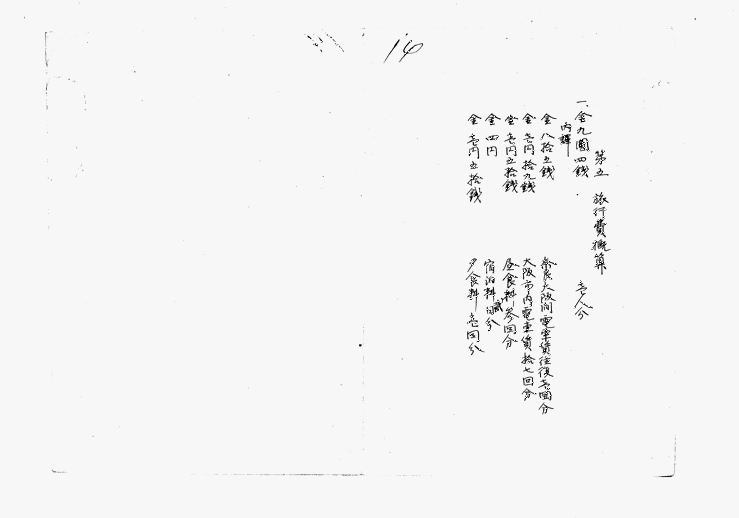 14
第五 旅行費概算 壱人分
一、金九圓四銭
内譯
金 八拾五銭 奈良大阪間電車賃往復壱回分
金 壱円拾九銭 大阪市内電車賃拾七回分
金 壱円五拾銭 昼食料参回分
金 四円 宿泊料貳回分
金 壱円五拾銭 夕食料壱回分